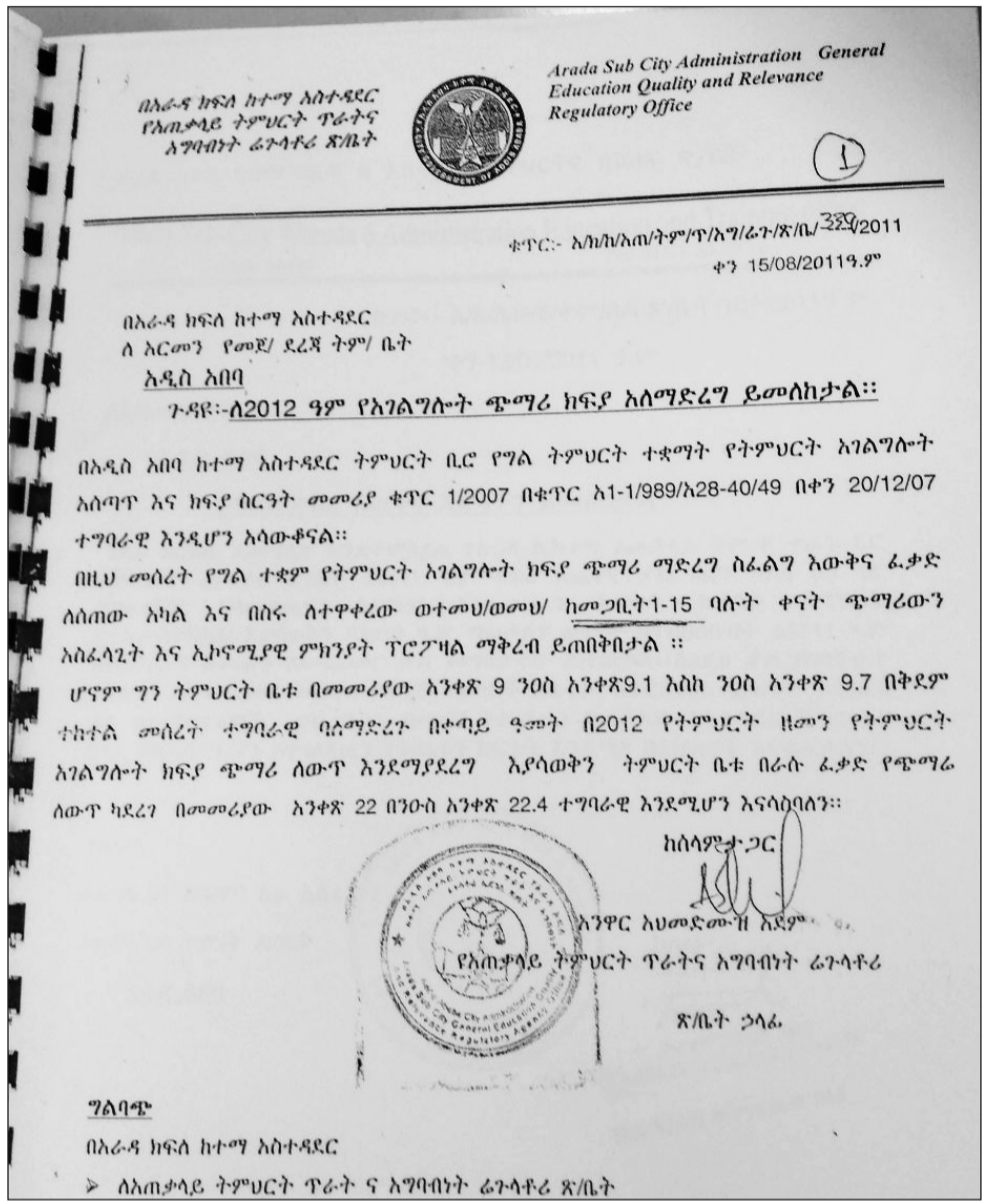 በአራዳ ክፍለ ከተማ አስተዳደር
የአጠቃላይ ትምህርት ጥራትና
አግባብነት ሬጉላቶሪ ጽ/ቤት
Arada Sub City Administration General
Education Quality and Relevance
Regulatory Office
1
ቁጥር:- አ/ክ/ከ/አጠ/ትም/ጥ/አግ/ሬጉ/ጽ/ቤ/ /2011
ቀን 15/08/2011ዓ.ም
በአራዳ ክፍለ ከተማ አስተዳደር
ለ አርመን የመጀ/ ደረጃ ትም/ ቤት
አዲስ አበባ
ጉዳዩ:-ለ2012 ዓም የአገልግሎት ጭማሪ ክፍያ አለማድረግ ይመለከታል።
በአዲስ አበባ ከተማ አስተዳደር ትምህርት ቢሮ የግል ትምህርት ተቋማት የትምህርት አገልግሎት
አሰጣጥ እና ክፍያ ስርዓት መመሪያ ቁጥር 1/2007 በቁጥር አ1-1/989/አ28-40/49 በቀን 20/12/07
ተግባራዊ እንዲሆን አሳውቆናል።
በዚህ መሰረት የግል ተቋም የትምህርት አገልግሎት ክፍያ ጭማሪ ማድረግ ስፈልግ እውቅና ፈቃድ
ለሰጠው አካል እና በስሩ ለተዋቀረው ወተመህ/ወመህ/ ከመጋቢት1-15 ባሉት ቀናት ጭማሪውን
አስፈላጊት እና ኢኮኖሚያዊ ምክንያት ፕሮፖዛል ማቅረብ ይጠበቅበታል ።
ሆኖም ግን ትምህርት ቤቱ በመመሪያው አንቀጽ 9 ንዐስ አንቀጽ9.1 እስከ ንዐስ አንቀጽ 9.7 በቅደም
ተከተል መሰረት ተግባራዊ ባለማድረጉ በቀጣይ ዓመት በ2012 የትምህርት ዘመን የትምህርት
አገልግሎት ክፍያ ጭማሪ ለውጥ እንደማያደረግ እያሳወቅን ትምህርት ቤቱ በራሱ ፈቃድ የጭማሬ
ለውጥ ካደረገ በመመሪያው አንቀጽ 22 በንዑስ አንቀጽ 22.4 ተግባራዊ እንደሚሆን እናሳስባለን።
ከሰላምታ ጋር
አንዋር አህመድሙዝ አደም
የአጠቃላይ ትምህርት ጥራትና አግባብነት ሬጉላቶሪ
ጽ/ቤት ኃላፊ
Arada Sub City General Education Quality
And Relevance Regulatory Agency Office
ግልባጭ
በአራዳ ክፍለ ከተማ አስተዳደር
➢ ለአጠቃላይ ትምህርት ጥራት ና አግባብነት ሬጉላቶሪ ጽ/ቤት